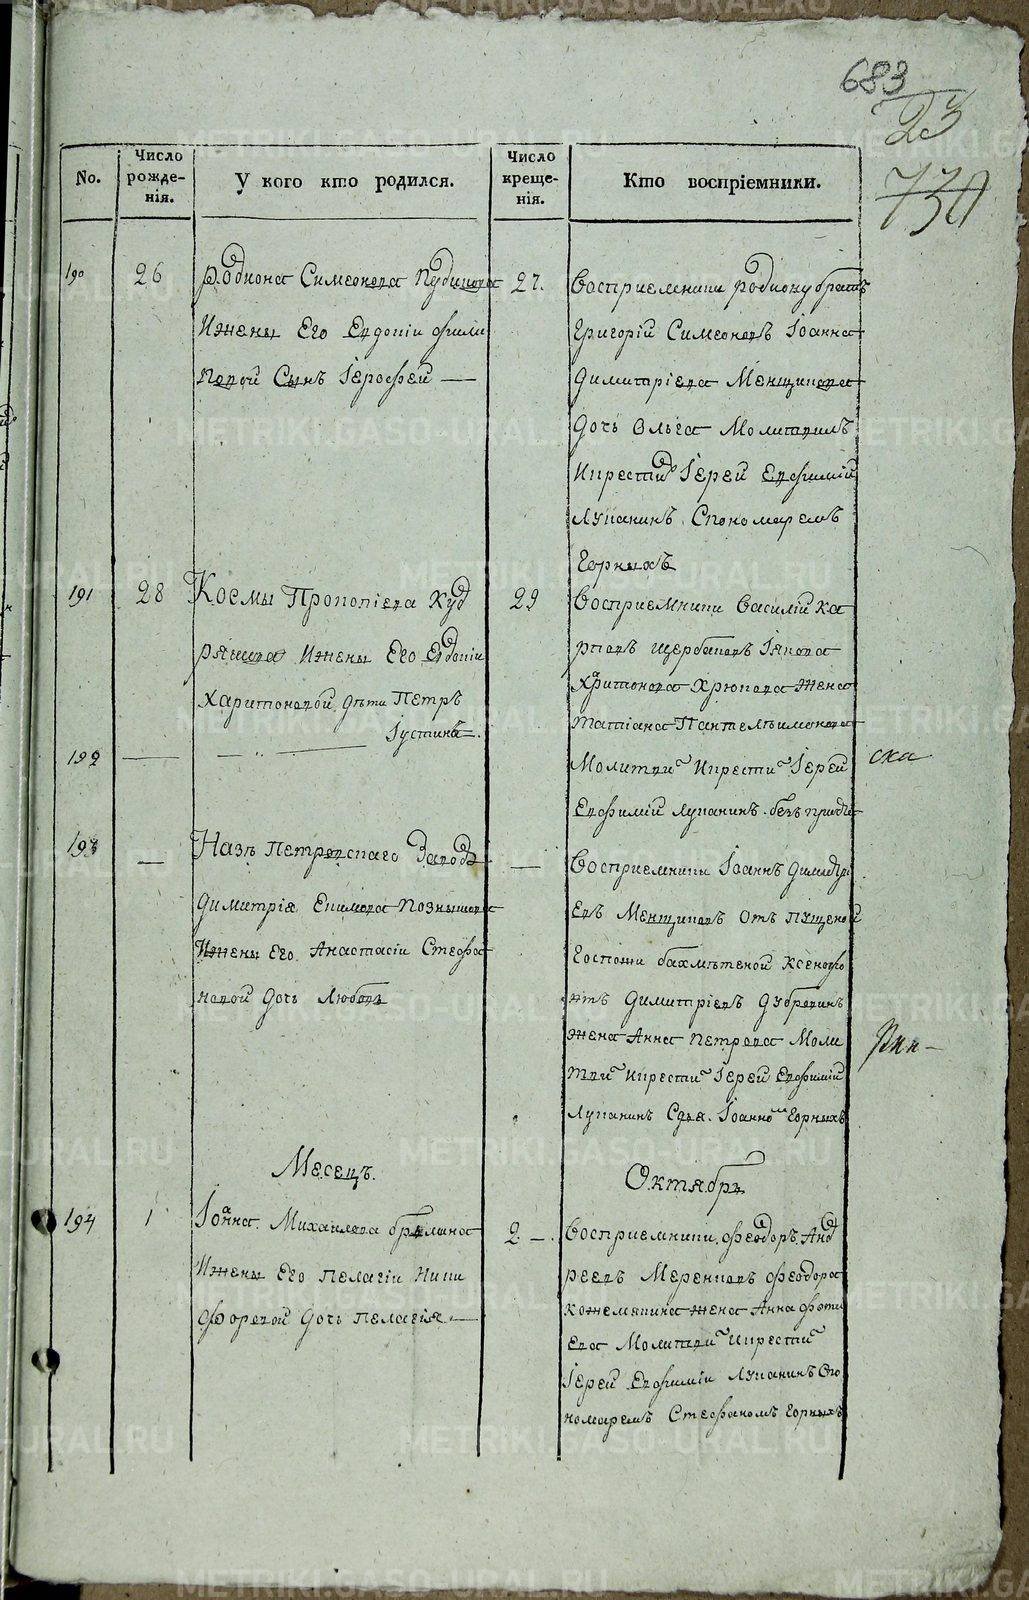 683
23
730
No.
Число рожде-нія.
У кого кто родился.
Число креще-нія.
Кто воспріемники.
190
26
Родиона Симеонова Кудинова
Ижены Его Евдокіи Фили
повой Сынъ Іерофей —
27.
Восприемники родиону братъ
Григорій Симеоновъ Іоанна
Димитріева Менщикова
дочь Ольга Молитвилъ
Икрестилъ Іерей Евфимій
Лукание Спономаремъ
Горныхъ
191
28
Космы Прокопіева Худ
рякова Ижены Его Евдокіи
Харитоновой дѣти Петръ
Іустинъ
29
Восприемники Василій Ка
рповъ Щербаковъ Іякова
Харитонова Хрюкова Жена
Татіана Пантелѣимонова
192
Молитви Икрести Іерей
Евфимій Луканинъ безъ причет
ска
193
Казъ Петровскаго Завода
Димитрія Екимова Познякова
Ижены Его Анастасіи Стефа
новой Дочь Любовь
Восприемники Іоаннъ Димитрі
евъ Менщиковъ Отъ Пущеной
Госпожи бахмѣтевой Ксенофо
нтъ Димитріевъ Дубровинъ
Жена Анна Петрова Моли
тви Икрести Іерей Евфимій
Луканинъ Сдья. Іоанно Горныхъ
Месецъ.
Октябрь
194
1
Іоанна Михаилова
Ижены Его Пелагіи Ники
форовой Дочь Пелагія —
2
Восприемники Феодоръ Анд
реевъ Меренковъ Феодора
Кожемякина Жена Анна Фоти
ева Молитви Икрести
Іерей Евфимій Луканинъ Спо
номаремъ Стефаномъ Горныхъ
METRIKI.GASO-URAL.RU